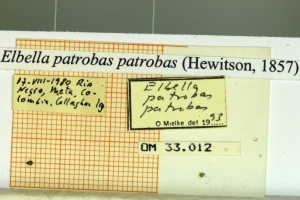 Elbella patrobas patrobas (Hewitson, 1857)
17-VIII-1980 Rio
Negro, Meta, Co-
lombia, Callaghan lg
Elbella
patrobas
patrobas
O Mielke det 1993
OM 33.012